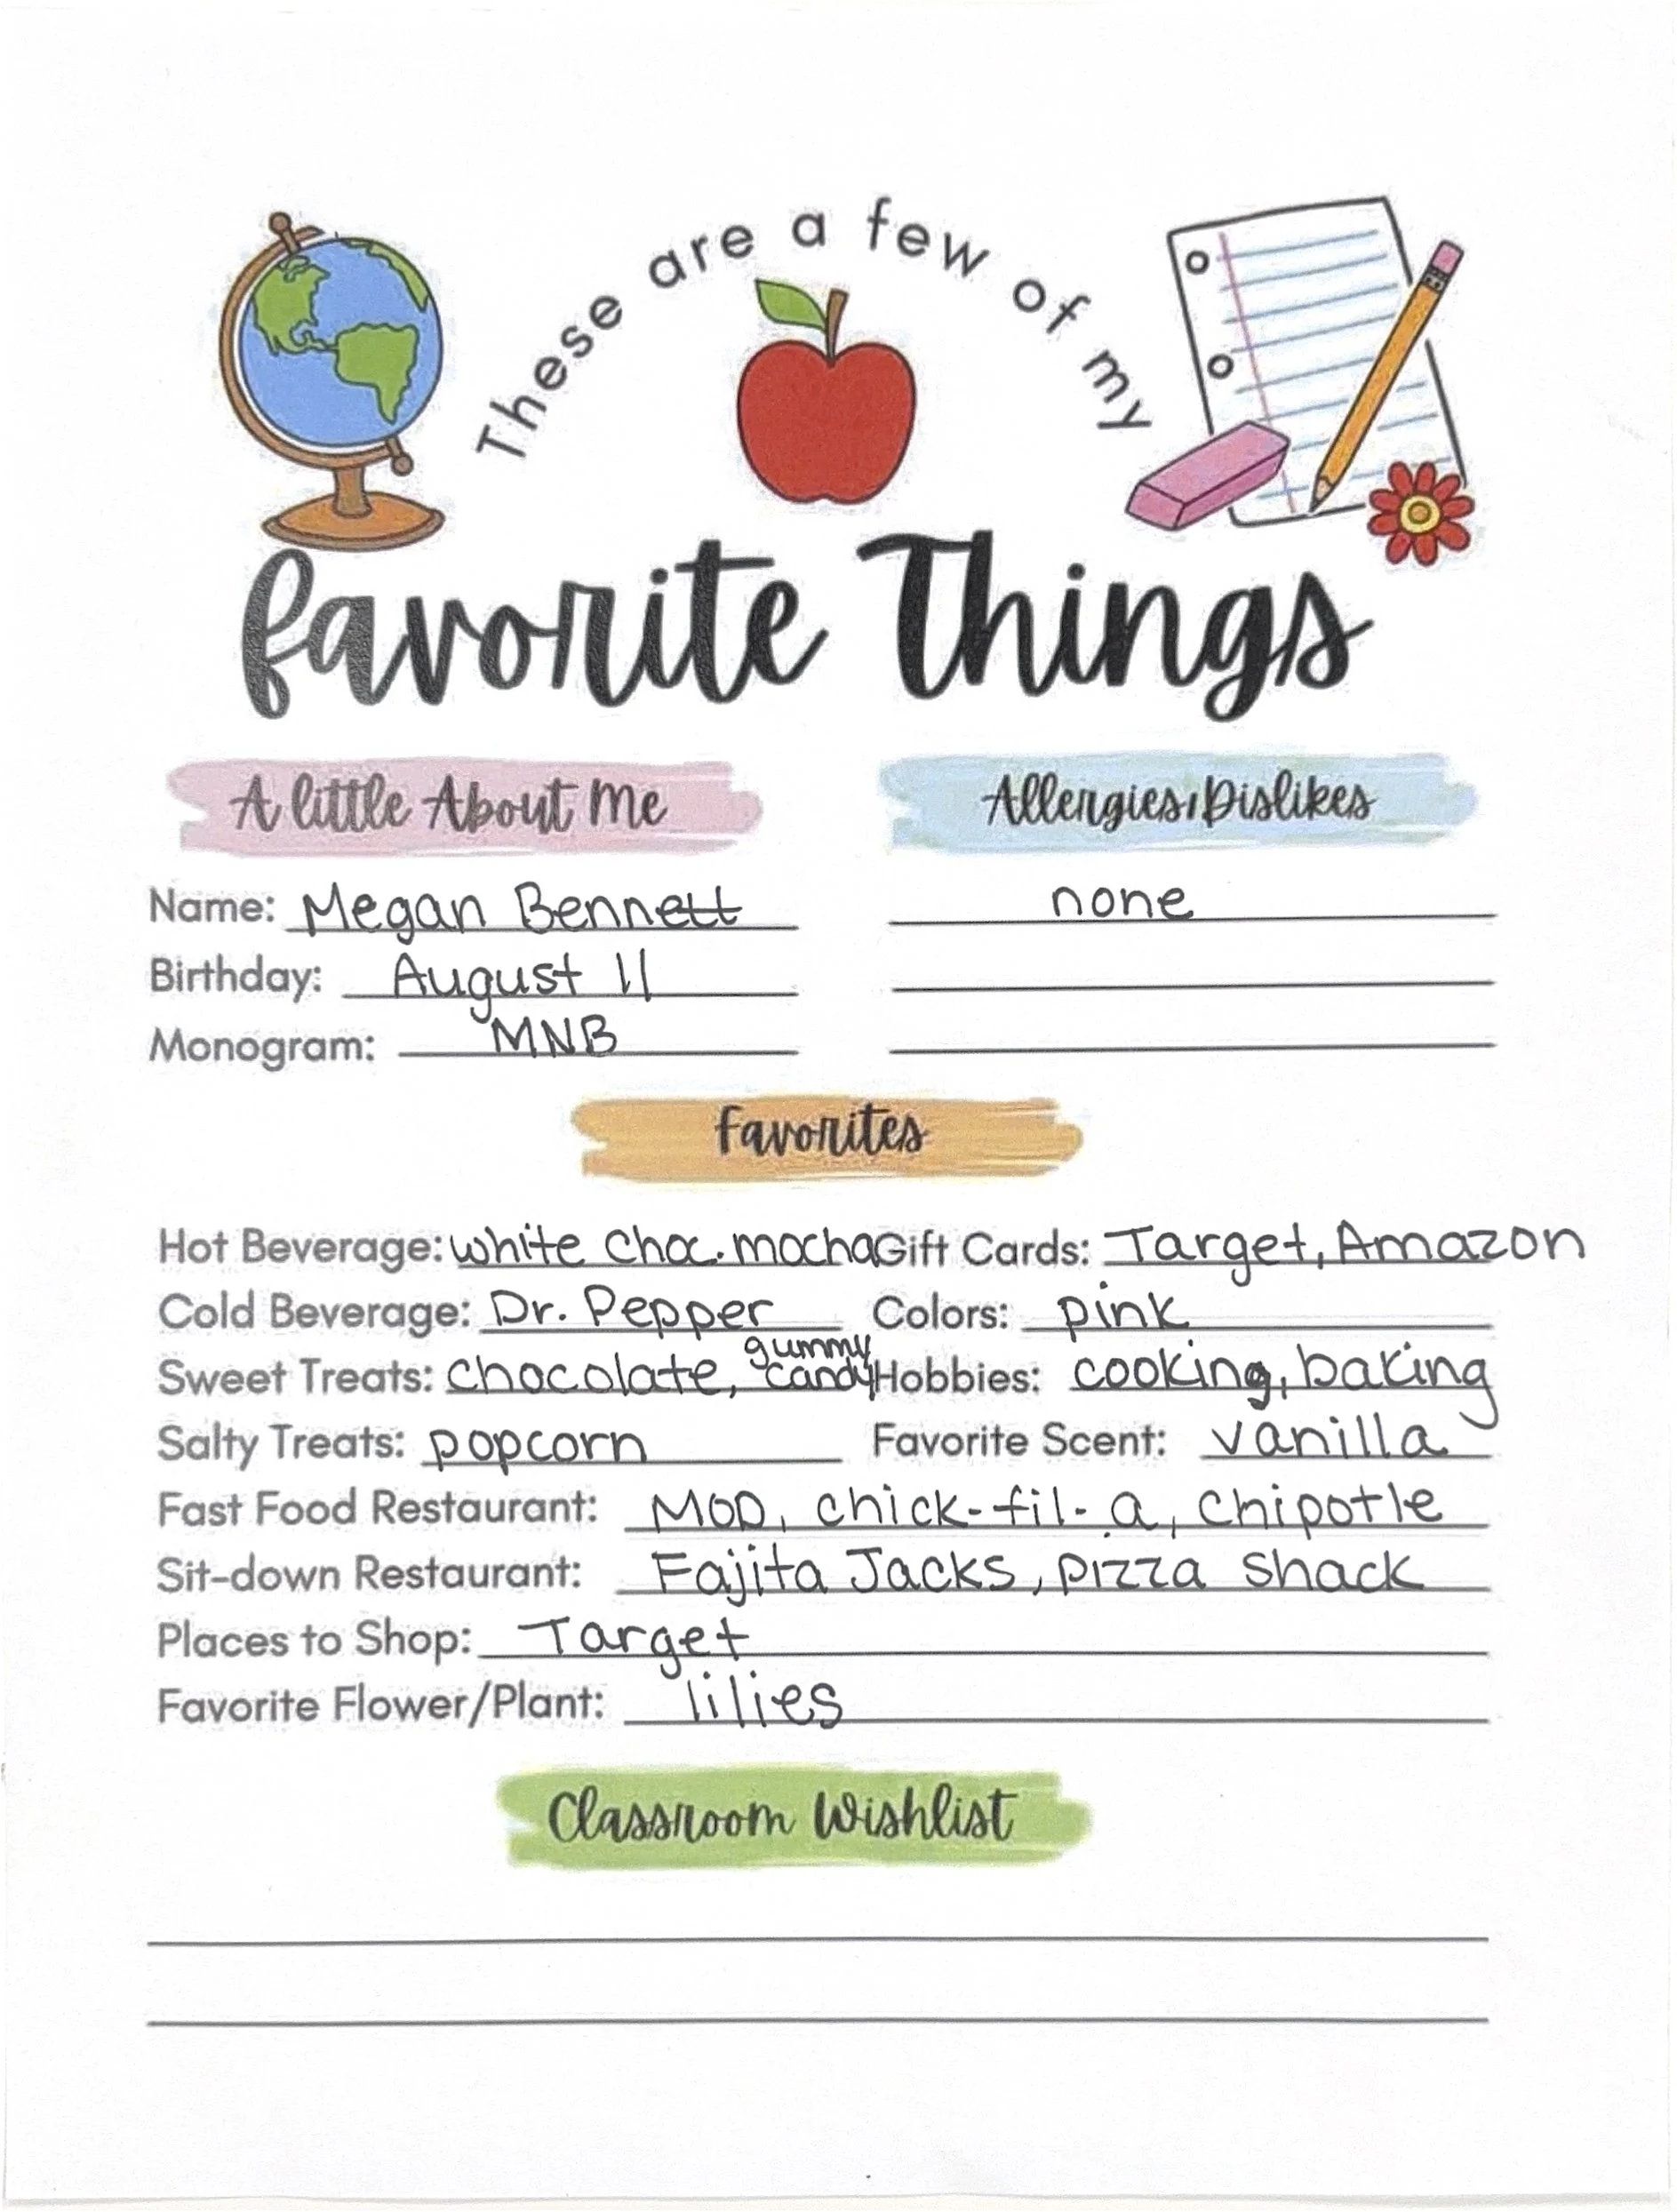 These are a few of my
favorite Things
A little About Me
Allergies/Dislikes
Name: Megan Bennett
none
Birthday: August 11
Monogram: MNB
Favorites
Hot Beverage: white choc. mocha Gift Cards: Target, Amazon
Cold Beverage: Dr. Pepper Colors: pink
Sweet Treats: chocolate, gummy candy Hobbies: cooking, baking
Salty Treats: popcorn Favorite Scent: vanilla
Fast Food Restaurant: MOD, chick-fil-a, Chipotle
Sit-down Restaurant: Fajita Jacks, pizza shack
Places to Shop: Target
Favorite Flower/Plant: lilies
Classroom Wishlist